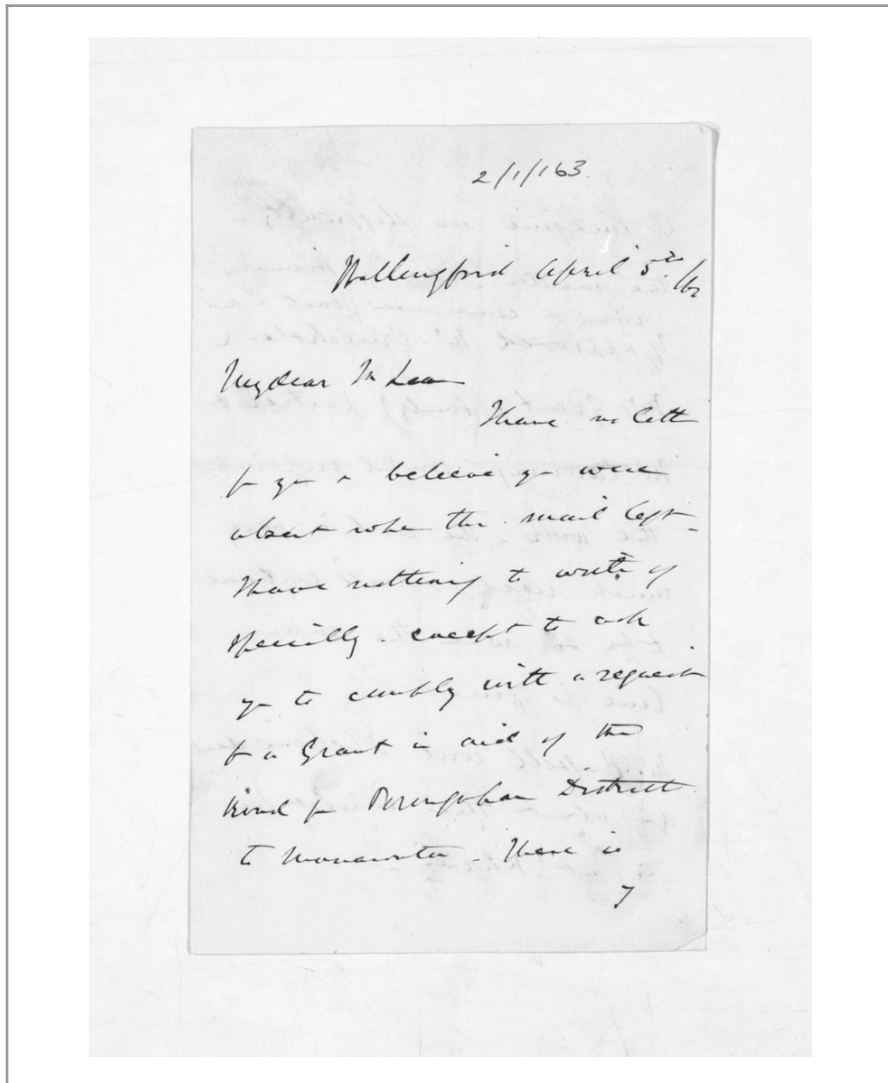 2/1/163.
Wallingford April 5th /62
My dear McLean
I have no lett
fr you & believe you were
absent when the mail left -
I have nothing to write of
specially except to ask
you to comply with a request
for a Grant in aid of the
Road fr Porangahau District
to Manawatu - There is